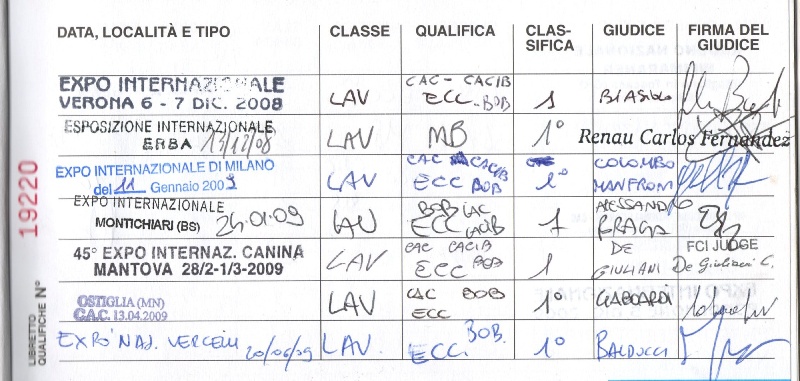 DATA, LOCALITÀ E TIPO CLASSE QUALIFICA CLAS-SIFICA GIUDICE FIRMA DEL GIUDICE
EXPO INTERNAZIONALE CAC - CACIB
VERONA 6 - 7 DIC. 2008 LAV ECC. BOB 1 BIASIOLO
ESPOSIZIONE INTERNAZIONALE
ERBA 13/12/08 LAV MB 1° Renau Carlos Fernandez
EXPO INTERNAZIONALE DI MILANO CAC CACIB COLOMBO
del 11 Gennaio 2009 LAV ECC BOB 1° MANFRONI
EXPO INTERNAZIONALE BOB CAC ALESSANDRO
MONTICHIARI (BS) 24.01.09 LAV ECC CACIB 1
45° EXPO INTERNAZ. CANINA CAC CACIB DE FCI JUDGE
MANTOVA 28/2-1/3-2009 LAV ECC BOB 1 GIULIANI De Giuliani C.
OSTIGLIA (MN) CAC BOB
C.A.C. 13.04.2009 LAV ECC 1° GABOARDI
EXPO NAZ. VERCELLI 20/06/09 LAV. ECC. BOB. 1° BALDUCCI
19220
LIBRETTO
QUALIFICHE N°